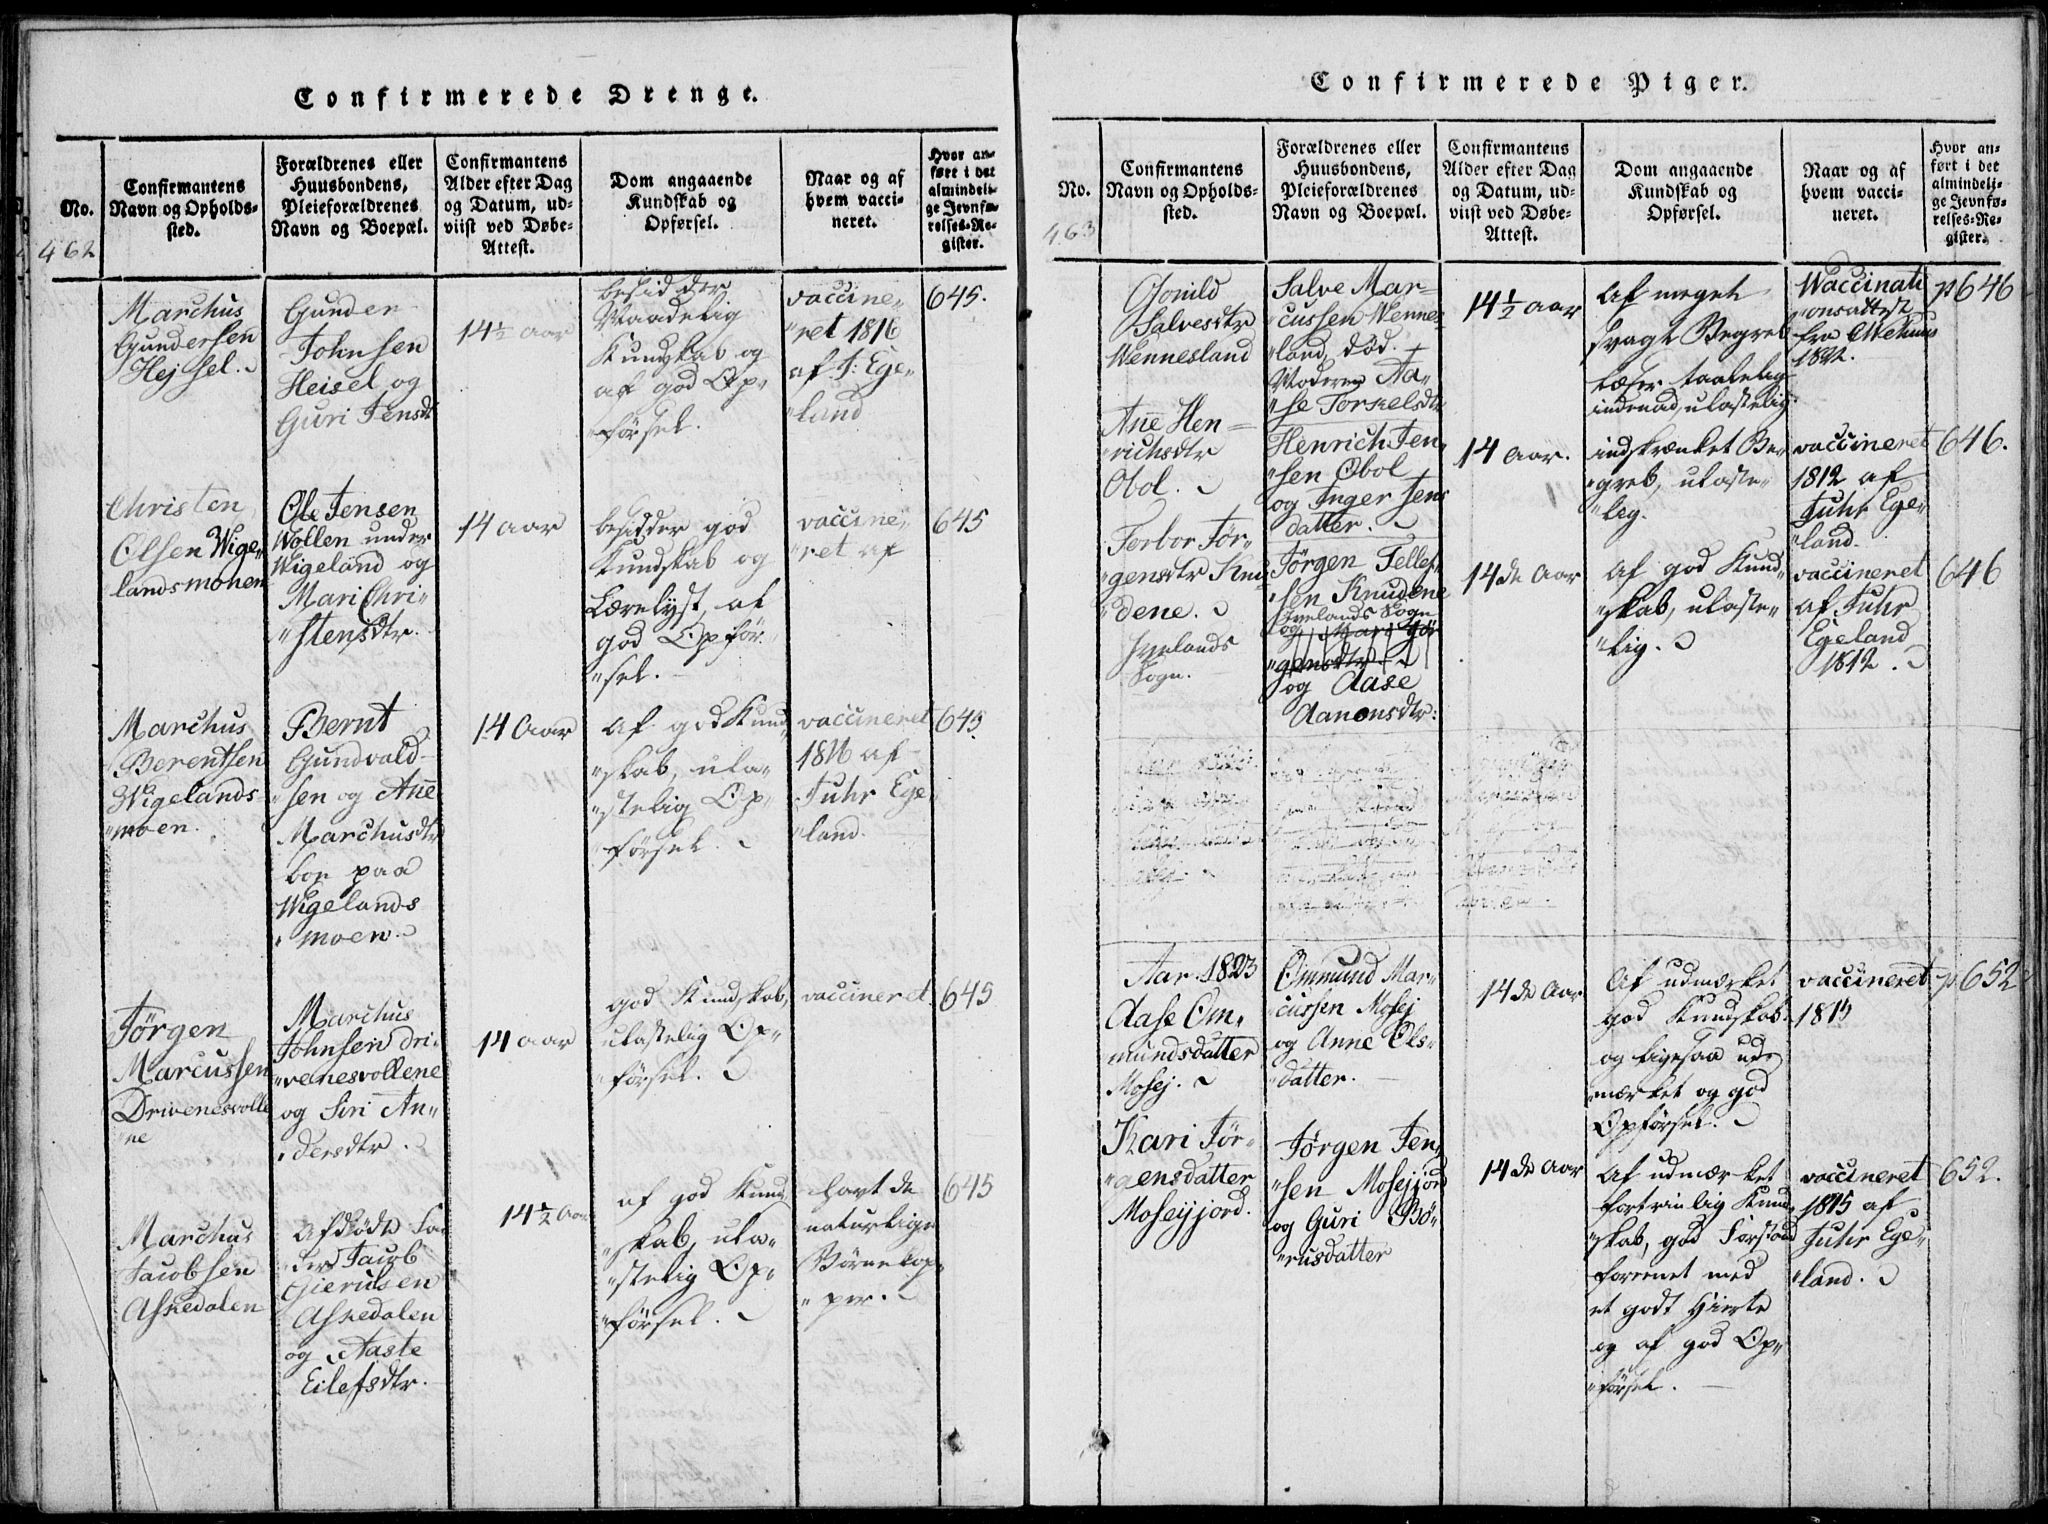 Confirmerede Drenge.
No.
Confirmantens
Navn og Opholds-
sted.
Forældrenes eller
Huusbondens,
Pleieforældrenes
Navn og Boepæl.
Confirmantens
Alder efter Dag
og Datum, ud-
viist ved Døbe-
Attest.
Dom angaaende
Kundskab og
Opførsel.
Naar og af
hvem vacci-
neret.
Hvor an-
ført i det
almindeli-
ge Jevnfø-
relses-Re-
gister.
462
Marchus
Gundersen
Hejsel.
Gunder
Johnsen
Heisel og
Guri Jensdt
14½ aar
besidder
Maadelig
Kundskab og
af god Op„
„førsel.
vaccine„
„ret 1816
af J: Ege„
„land
645.
Christen
Olsen Wige„
landsmonen
Ole Jensen
Wollen under
Wigeland og
Mari Chri„
„stensdtr.
14 aar
besidder god
Kundskab og
Lærelyst, af
god Opför„
„sel.
vaccine„
„ret af
645
Marchus
Berentsen
Wigelands-
„moen.
Bernt
Gundvald-
„sen og Ane
Marchusdtr
boe paa
Wigelands
„moen.
14 Aar
Af god Kund„
„skab, ula„
„stelig Op„
„førsel.
vaccineret
1816 af
Fuhr Ege„
„land.
645.
Jörgen
Marcussen
Drivenesvolle
„ne
Marchus
Johnsen Dri„
„venesvollene
og Siri An„
„dersdtr.
14 aar
god Kundskab,
ulastelig Op„
„førsel.
vaccineret.
645
Marchus
Jacobsen
Askedalen
Afdöde Fa„
„der Jacob
Gierulsen
Askedalen
og Aaste
Eilefsdtr.
14½ Aar
af god Kund„
„skab, ula„
„stelig Op„
„førsel.
havt de
naturlige
Börnekop„
„per.
645
Confirmerede Piger.
No.
Confirmantens
Navn og Opholds-
sted.
Forældrenes eller
Huusbondens,
Pleieforældrenes
Navn og Boepæl.
Confirmantens
Alder efter Dag
og Datum, ud-
viist ved Døbe-
Attest.
Dom angaaende
Kundskab og
Opførsel.
Naar og af
hvem vacci-
neret.
Hvor an-
ført i det
almindeli-
ge Jevnfø-
relses-Re-
gister.
463
Gonild
Salvesdtr
Wennesland
Salve Mar-
„cussen Wennes
„land, död.
Moderen Aa„
„se Torkelsdtr
14½ aar
Af meget
svagt Begreb
læser taalelig
indenad, ulastelig.
Waccinati
„onsattest
fra
1812.
p 646
Ane Hen-
„richsdtr
Obol.
Henrich Jen„
„sen Obol
og Inger Jens
datter.
14 Aar.
indskrænket Be„
„greb, ulaste„
„lig.
vaccineret
1812 af
Fuhr Ege„
„land.
646.
Torbor Jör„
„gensdtr Knu„
„dene.
Ivelands
Sogn.
Jörgen Tellef„
„sen Knudene
Ivelands Sogn
og Kari Jör
„gensdtr.
og Aase
Aanonsdtr:
14de Aar
Af god Kund„
„skab, ulaste„
„lig.
vaccineret
af Fuhr
Egeland
1812.
646
Aar 1823
Aase Om„
mundsdatter
Mosej.
Ommund Mar„
„cussen Mosej
og Anne Ols-
„datter.
14de Aar
Af udmærket
god Kundskab
og ligesaa ud„
„mærket og god
Opförsel.
vaccineret
1815
p 652
Kari Jör„
„gensdatter
Moseijord.
Jörgen Jen„
„sen Mosejjord
og Guri Bö„
„rusdatter
14de Aar
Af udmærket
fortrinlig Kund„
„skab, god Forstand
forenet med
et godt Hierte
og af god Op„
„førsel.
vaccineret
1815 af
Fuhr Ege„
„land.
652.